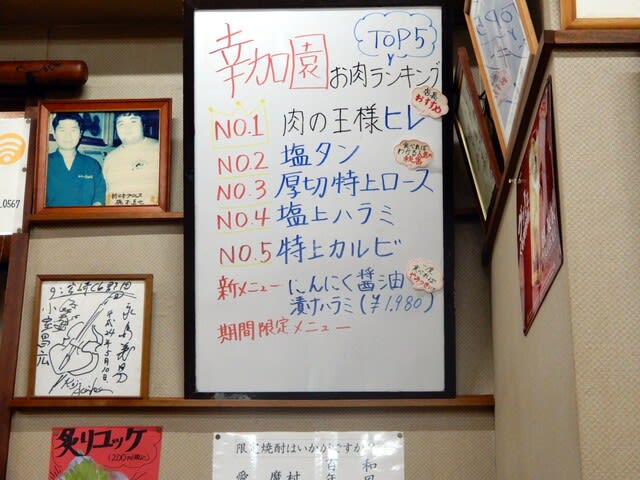 幸加園
TOP5
お肉ランキング
店長
おすすめ
NO.1 肉の王様ヒレ
NO.2 塩タン
NO.3 厚切特上ロース
NO.4 塩上ハラミ
NO.5 特上カルビ
新メニュー にんにく醤油
漬けハラミ(¥1,980)
期間限定メニュー
0567
平成24年5月10日
炙りユッケ
限定焼酎はいかがですか?